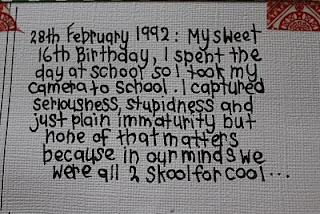 28th February 1992: My sweet
16th Birthday, I spent the
day at school so I took my
camera to school. I captured
seriousness, stupidness and
just plain immaturity but
none of that matters
because in our minds we
were all 2 skool for cool...